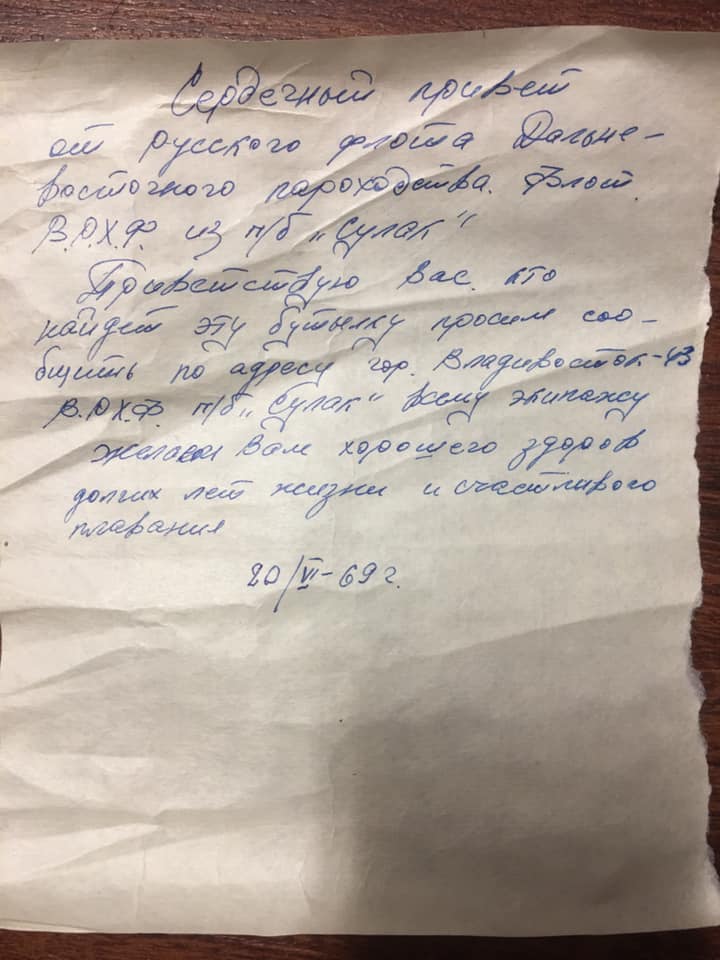 Сердечный привет
от русского флота Дальне-
восточного пароходства. Флот
В.Р.Х.Ф. из п/б „Сулак"
Приветствую Вас. кто
найдет эту бутылку просим соо-
бщить по адресу гор. Владивосток-43
В.Р.Х.Ф. п/б „Сулак" всему экипажу
Желаем Вам хорошего здоров
долгих лет жизни и счастливого
плавания
20/VI-69 г.